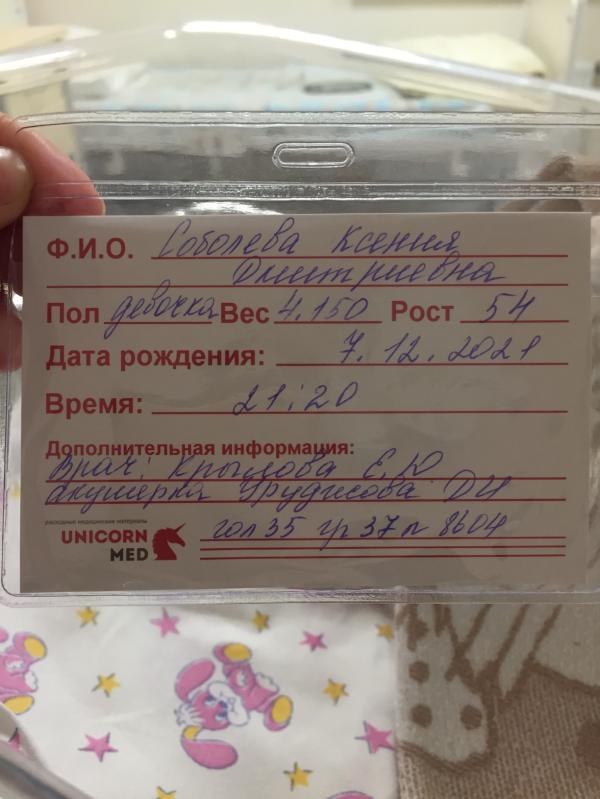 Ф.И.О. Соболева Ксения
Дмитриевна
Пол девочка Вес 4.150 Рост 54
Дата рождения: 7.12.2021
Время: 21:20
Дополнительная информация:
Врач: Крылова Е.Ю
акушерка ДИ
расходные медицинские материалы
UNICORN
MED
гол 35 гр 37 8604